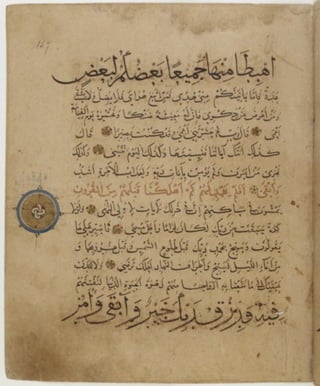 اهبطا منها جميعا بعضكم لبعض
عدو فاما ياتينكم مني هدى فمن اتبع هداي فلا يضل ولا يشقى
ومن اعرض عن ذكري فان له معيشة ضنكا ونحشره يوم القيمة
اعمى قال رب لم حشرتني اعمى وقد كنت بصيرا قال
كذلك اتتك اياتنا فنسيتها وكذلك اليوم تنسى وكذلك
نجزي من اسرف ولم يؤمن بايات ربه ولعذاب الاخرة اشد
وابقى افلم يهد لهم كم اهلكنا قبلهم من القرون
يمشون في مساكنهم ان في ذلك لايات لاولي النهى ولولا
كلمة سبقت من ربك لكان لزاما واجل مسمى فاصبر على ما
يقولون وسبح بحمد ربك قبل طلوع الشمس وقبل غروبها و
من اناء الليل فسبح واطراف النهار لعلك ترضى ولا تمدن
عينيك الى ما متعنا به ازواجا منهم زهرة الحيوة الدنيا لنفتنهم
فيه ورزق ربك خير وابقى وامر